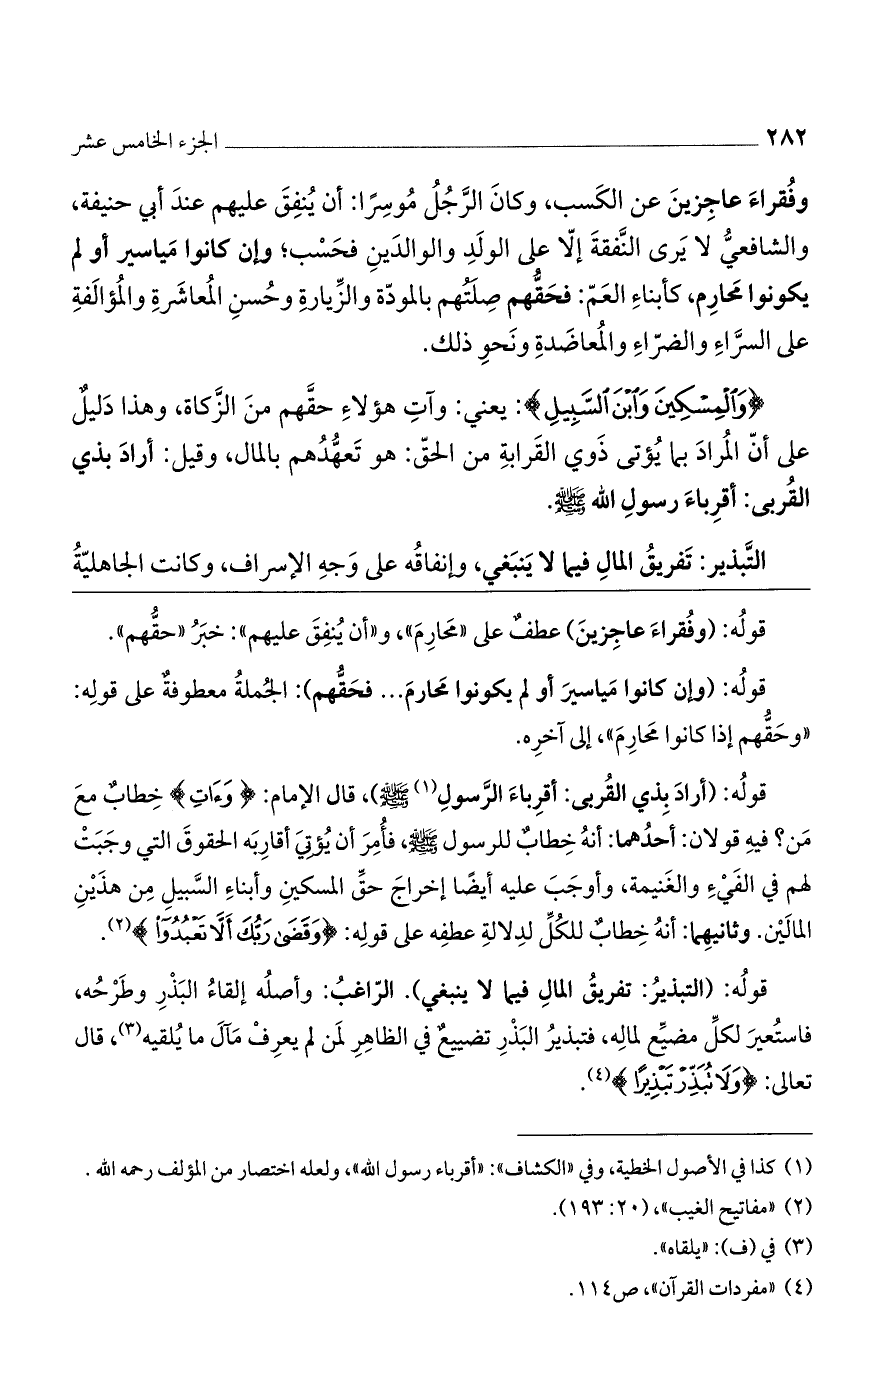 ٢٨٢ الجزء الخامس عشر
وفُقراءَ عاجِزينَ عن الكَسب، وكانَ الرَّجُلُ مُوسِرًا: أن يُنفِقَ عليهم عندَ أبي حنيفة،
والشافعيُّ لا يَرى النَّفقةَ إلّا على الولَدِ والوالدَينِ فحَسْب؛ وإن كانوا مَياسير أو لم
يكونوا مَحارِم، كأبناءِ العَمّ: فحَقُّهم صِلَتُهم بالمودّة والزِّيارةِ وحُسنِ المُعاشَرةِ والمُؤالَفةِ
على السرَّاءِ والضرّاءِ والمُعاضَدةِ ونَحوِ ذلك.
﴿وَٱلْمِسْكِينَ وَٱبْنَ ٱلسَّبِيلِ﴾: يعني: وآتِ هؤلاءِ حقَّهم منَ الزَّكاة، وهذا دَليلٌ
على أنّ المُرادَ بما يُؤتى ذَوي القَرابةِ من الحقّ: هو تَعهُّدُهم بالمال، وقيل: أرادَ بذي
القُربى: أقرِباءَ رسولِ الله ﷺ.
التَّبذير: تَفريقُ المالِ فيما لا يَنبَغي، وإنفاقُه على وَجهِ الإسراف، وكانت الجاهليّةُ
قولُه: (وفُقراءَ عاجِزينَ) عطفٌ على «مَحارِمَ»، و«أن يُنفِقَ عليهم»: خبَرُ «حقُّهم».
قولُه: (وإن كانوا مَياسيرَ أو لم يكونوا مَحارمَ... فحَقُّهم): الجُملةُ معطوفةٌ على قولِه:
«وحَقُّهم إذا كانوا مَحارِمَ»، إلى آخرِه.
قولُه: (أرادَ بِذي القُربى: أقرِباءَ الرَّسولِ(١) ﷺ)، قال الإمام: ﴿وَءَاتِ﴾ خِطابٌ معَ
مَن؟ فيهِ قولان: أحدُهما: أنهُ خِطابٌ للرسول ﷺ، فأُمِرَ أن يُؤتِيَ أقارِبَه الحقوقَ التي وجَبَتْ
لهم في الفَيْءِ والغَنيمة، وأوجَبَ عليه أيضًا إخراجَ حقِّ المسكينِ وأبناءِ السَّبيلِ مِن هذَيْنِ
المالَيْن. وثانيهِما: أنهُ خِطابٌ للكُلِّ لدِلالةِ عطفِه على قولِه: ﴿وَقَضَىٰ رَبُّكَ أَلَّا تَعْبُدُوٓا۟﴾(٢).
قولُه: (التبذيرُ: تفريقُ المالِ فيما لا ينبغي). الرّاغبُ: وأصلُه إلقاءُ البَذْرِ وطَرْحُه،
فاستُعيرَ لكلِّ مضيِّع لمالِه، فتبذيرُ البَذْرِ تضييعٌ في الظاهِرِ لمَن لم يعرِفْ مَآلَ ما يُلقيه(٣)، قال
تعالى: ﴿وَلَا تُبَذِّرْ تَبْذِيرًا﴾(٤).
(١) كذا في الأصول الخطية، وفي «الكشاف»: «أقرباء رسول الله»، ولعله اختصار من المؤلف رحمه الله .
(٢) «مفاتيح الغيب»، (٢٠: ١٩٣).
(٣) في (ف): «يلقاه».
(٤) «مفردات القرآن»، ص١١٤.